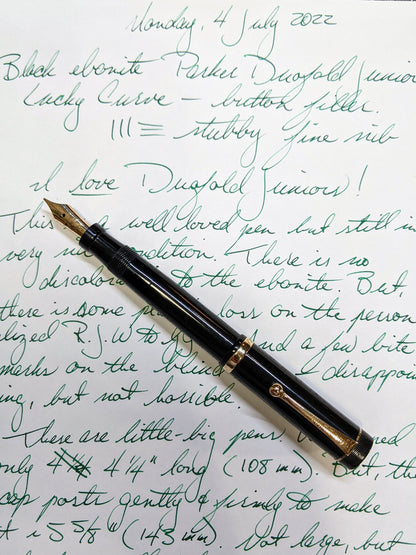 Monday, 4 July 2022
Black ebonite Parker Duofold Junior
Lucky Curve — button filler.
stubby fine nib
I love Duofold Juniors!
This is a well loved pen but still in
very condition. There is no
to the ebonite. But,
there is some loss on the person
alized R.J.W and a few bite
marks on the blind disappoin
ing, but not horrible.
These are little-big pens,
only 4 1/4 4 1/4" long (108 mm). But, the
cap posts gently & firmly to make
it 5 5/8" (143 mm). Not large, but